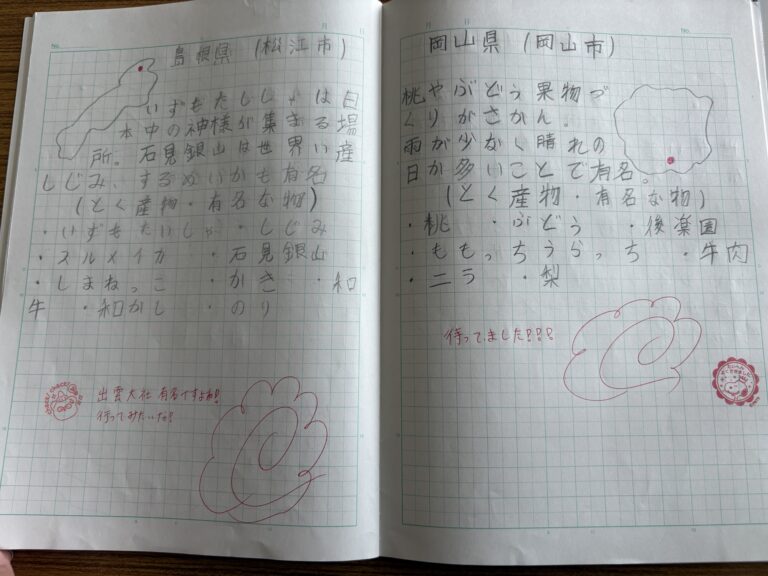 No.
月 日
島根県 (松江市)
いずもたいしゃは日
本中の神様が集まる場
所。石見銀山は世界い産
しじみ、するめいかも有名
(とく産物・有名な物)
・いずもたいしゃ ・しじみ
・スルメイカ ・石見銀山
・しまねっこ ・かき ・和
牛 ・和がし ・のり
出雲大社 有名ですよね!!
行ってみたいな!
No.
月 日
岡山県 (岡山市)
桃やぶどう果物づ
くりがさかん。
雨が少なく晴れの
日が多いことで有名。
(とく産物・有名な物)
・桃 ・ぶどう ・後楽園
・ももっちうらっち ・牛肉
・ニラ ・梨
待ってました!!!